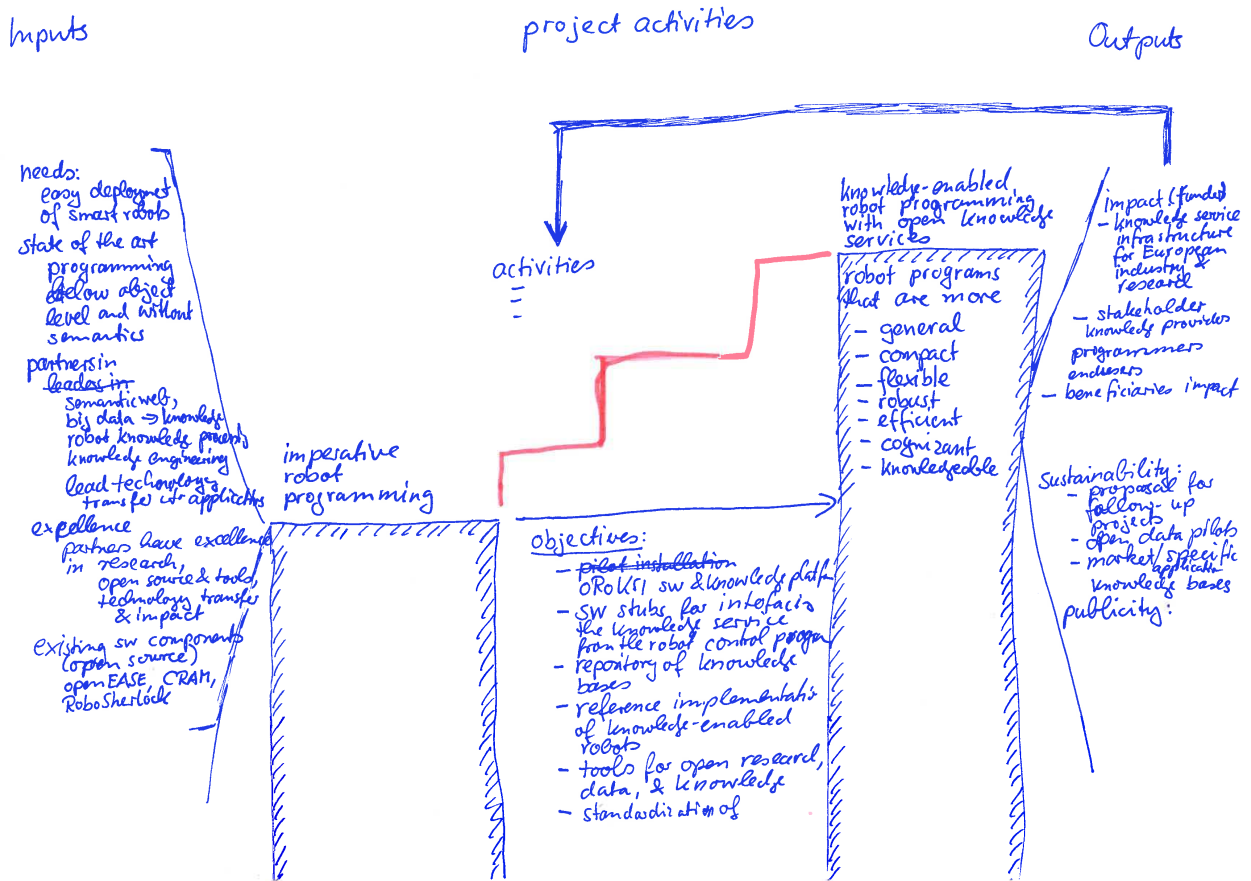 Inputs
project activities
Outputs
needs:
easy deployment
of smart robots
state of the art
programming
below object
level and without
semantics
partners in
leaders in
semantic web,
big data → knowledge
robot knowledge processing
knowledge engineering
lead technology
transfer applications
expellence
partners have excellence
in research,
open source & tools,
technology transfer
& impact
existing sw components
(open source)
openEASE, CRAM,
RoboSherlock
imperative
robot
programming
activities
objectives:
- pilot installation
sw & knowledge platfm
- SW stubs for interfacing
the knowledge service
from the robot control program
- repository of knowledge
bases
- reference implementatio
of knowledge-enabled
robots
- tools for open research,
data, & knowledge
- standardization of
knowledge-enabled
robot programming
with open knowledge
services
robot programs
that are more
- general
- compact
- flexible
- robust
- efficient
- cognizant
- knowledgeable
impact (funded
- knowledge service
infrastructure
for European
industry &
research
- stakeholder
knowledge providers
programmers
endusers
- beneficiaries impact
Sustainability:
- proposal for
follow-up
projects
- open data pilots
- market/specific
application
knowledge bases
publicity: